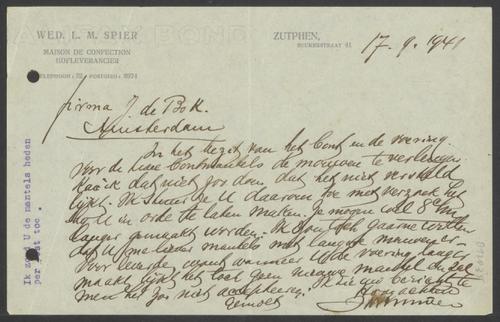 WED. L. M. SPIER
MAISON DE CONFECTION
HOFLEVERANCIER
TELEPHOON: 22 POSTGIRO: 8974
ZUTPHEN,
BEUKERSTRAAT 41
17-9-1941
firma J de Bok.
Amsterdam
In het bezit van het Cont en de voering.
voor de twee Contmantels de mouwen te verlengen
kan ik dat niet zoo doen, dat het niet versteld
lijkt. Ik stuur ze U daarom toe met verzoek het
zoo in orde te laten maken. Ze mogen wel 8 cm
langer gemaakt worden. Ik zou toch gaarne willen
dat U me liever mantels met langere mouwen er
voor leverde, want wanneer U de voering langer
maakt lijkt het toch geen nieuwe mantel en zal
men het zoo niet accepteeren. Ik zie uw bericht te
gemoet Hoogachtend
Ik zond U de mantels heden
per post toe.